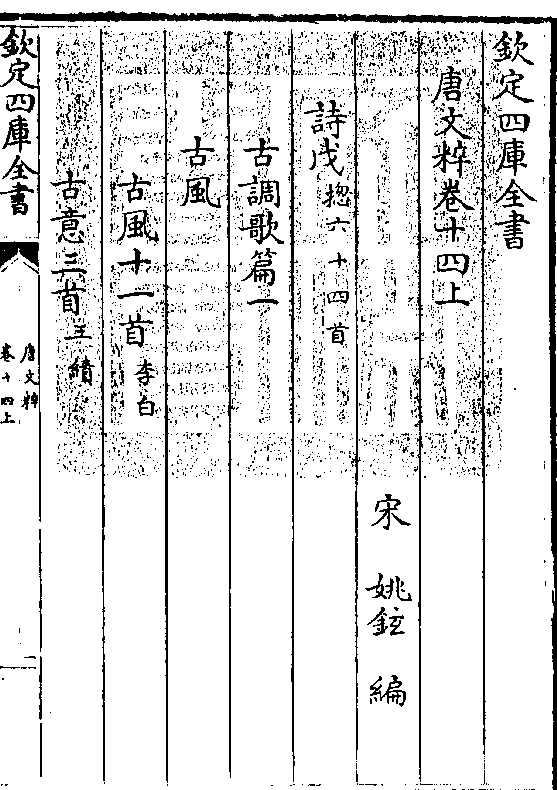 欽定四庫全書
唐文粹卷十四上
宋 姚鉉 編
詩戊 揔六十四首
古調歌篇一
古風
古風十一首 李白
古意三首 王績
欽定四庫全書
唐文粹
卷十四上
一